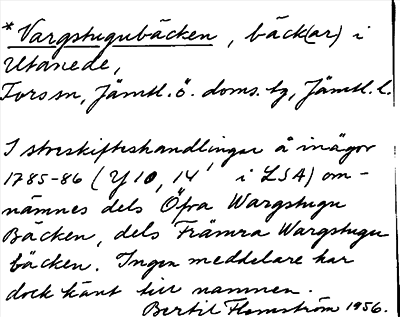 *Vargstugubäcken, bäck(ar) i
Utanede,
Fors sn, Jämtl. ö. doms. tg, Jämtl. l.
I storskifteshandlingar å inägor
1785-86 (Y 10, 14, i LSA) om-
nämnes dels Öfra Wargstugu
Bäcken, dels Främra Wargstugu
bäcken. Ingen meddelare har
dock känt till namnen.
Bertil Flemström 1956.